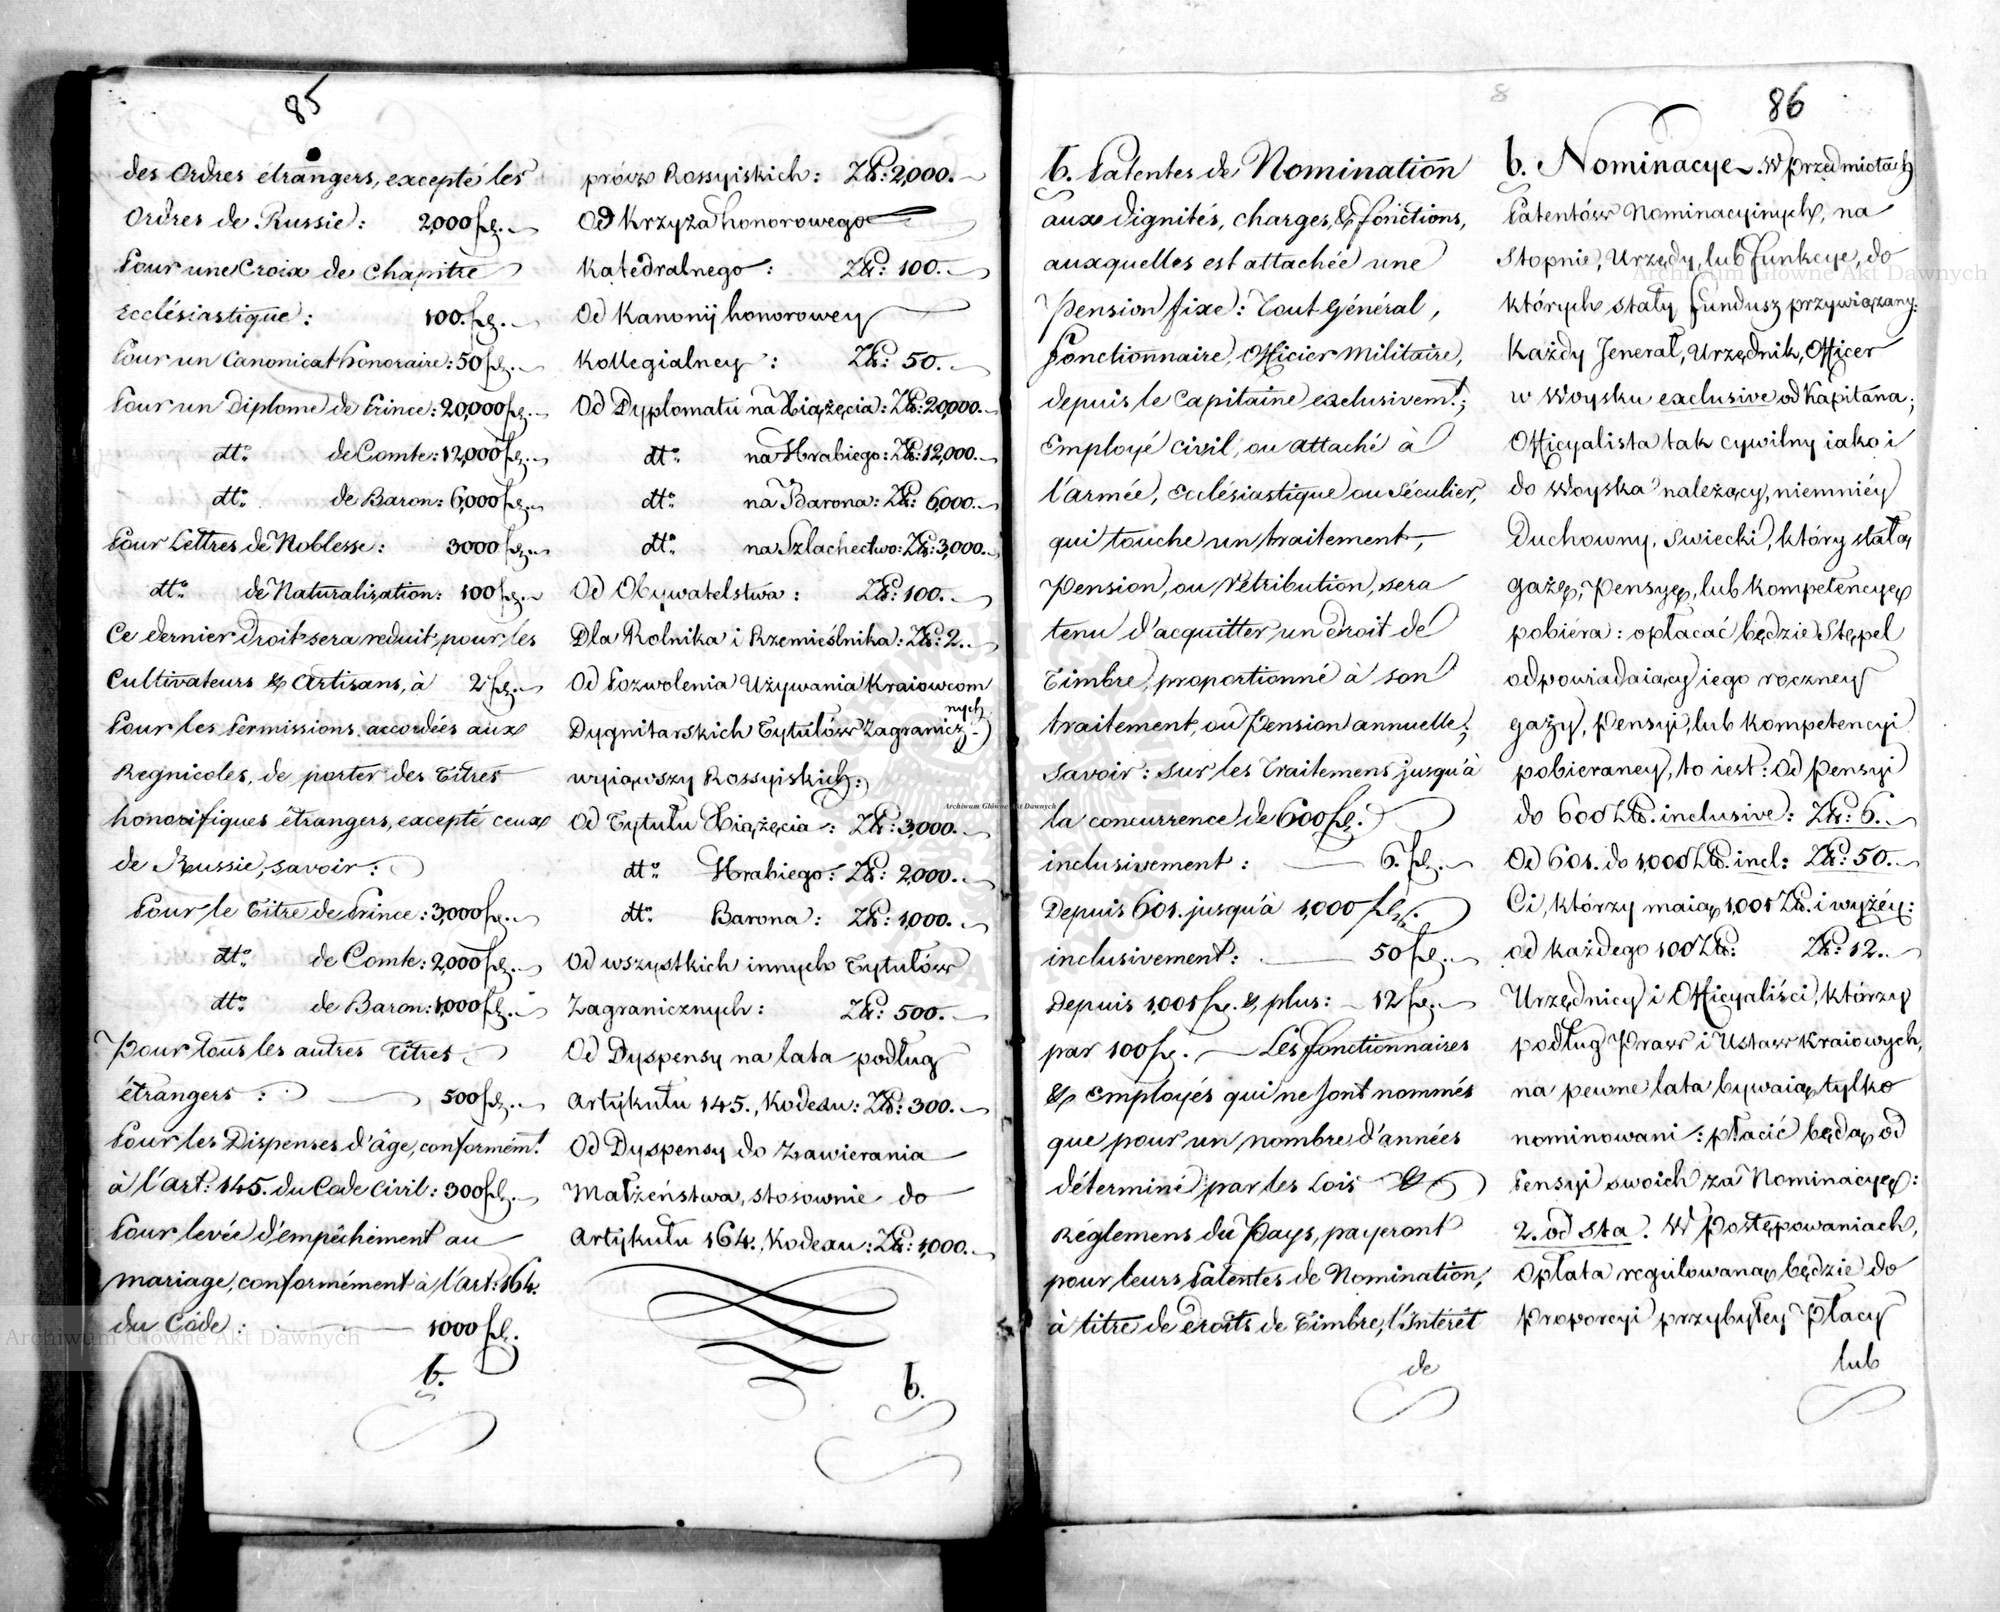 85
des Ordres étrangers, excepté les
Ordres de Russie: 2,000 fl.
Pour une Croix de Chapitre
ecclésiastique: 100. fl.
Pour un Canonicat honoraire: 50 fl.
Pour un Diplome de Prince: 20,000 fl.
dtto. de Comte: 12,000 fl.
dtto. de Baron: 6,000 fl.
Pour Lettres de Noblesse: 3000 fl.
dtto. de Naturalisation: 100 fl.
Ce dernier Droit sera reduit, pour les
Cultivateurs & Artisans, à 2 fl.
Pour les Permissions accordées aux
Regnicoles, de porter des Titres
honorifiques étrangers, excepté ceux
de Russie, savoir:
Pour le Titre de Prince: 3,000 fl.
dtto. de Comte: 2,000 fl.
dtto. de Baron: 1,000 fl.
Pour tous les autres Titres
étrangers: 500 fl.
Pour les Dispenses d'âge, conformémt.
à l'art: 145. du Code Civil: 300 fl.
Pour levée d'empêchement au
mariage, conformément à l'art: 164.
du Code: 1000 fl.
b.
prócz Rossyiskich: ZŁP: 2,000.
Od Krzyża honorowego
Katedralnego: ZŁP: 100.
Od Kanonij honorowey
Kollegialney: ZŁP: 50.
Od Dyplomatu na Xiążęcia: ZŁP: 20,000.
dtto. na Hrabiego: ZŁP: 12,000.
dtto. na Barona: ZŁP: 6,000.
dtto. na Szlachectwo: ZŁP: 3,000.
Od Obywatelstwa: ZŁP: 100.
Dla Rolnika i Rzemieślnika: ZŁP: 2.
Od Pozwolenia Używania Kraiowcom
Dygnitarskich Tytułów Zagranicz-
nych
wyiąwszy Rossyiskich:
Od Tytułu Xiążęcia: ZŁP: 3,000.
dtto. Hrabiego: ZŁP: 2,000.
dtto. Barona: ZŁP: 1,000.
Od wszystkich innych Tytułów
Zagranicznych: ZŁP: 500.
Od Dyspensy na lata podług
Artykułu 145., Kodexu: ZŁP: 300.
Od Dyspensy do Zawierania
Małżeństwa, stosownie do
Artykułu 164., Kodexu: ZŁP: 1,000.
b.
8
86
b. Patentes de Nomination
aux dignités, charges, & fonctions,
auxquelles est attachée une
Pension fixe: Tout Général,
Fonctionnaire, Officier Militaire,
depuis le Capitaine exclusivemt.;
Employé civil, ou attaché à
l'armée, Ecclésiastique ou Séculier,
qui touche un traitement,
Pension, ou rétribution, sera
tenu d'acquitter un droit de
Timbre, proportionné à son
traitement, ou Pension annuelle;
savoir: sur les Traitemens jusqu'à
la concurrence de 600 fl.
inclusivement: 6. fl.
Depuis 601. jusqu'à 1,000 fl.
inclusivement: 50 fl.
Depuis 1,001 fl. & plus: 12 fl.
par 100 fl. Les fonctionnaires
& Employés qui ne sont nommés
que pour un nombre d'années
déterminé par les Lois &
Réglemens du Pays, payeront
pour leurs Patentes de Nomination,
à titre de droits de Timbre, l'Intérêt
de
b. Nominacye. W przedmiotach
Patentów Nominacyinych, na
Stopnie, Urzędy, lub funkcye, do
których stały fundusz przywiązany:
Każdy Jenerał, Urzędnik, Officer
w Woysku exclusive od Kapitana;
Officyalista tak cywilny iako i
do Woyska należący, niemniéy
Duchowny, Swiecki, który stałą
gażę, Pensyę, lub kompetencyę
pobiéra: opłacać będzie Stępel
odpowiadaiący iego roczney
gaży, Pensyi, lub kompetencyi
pobieraney, to iest: Od Pensyi
do 600 ZŁP. inclusive: ZŁP: 6.
Od 601. do 1,000 ZŁP. incl: ZŁP: 50.
Ci, którzy maią 1,001 ZŁP. i wyżéy:
od każdego 100 ZŁP: ZŁP: 12.
Urzędnicy i Officyaliści, którzy
podług Praw i Ustaw Kraiowych,
na pewne lata bywaią tylko
nominowani: płacić będą od
Pensyi swoich za Nominacyę:
2. od sta. W Postępowaniach,
Opłata regulowaną będzie do
Proporcyi przybyłey Płacy
lub
Archiwum Główne Akt Dawnych
Archiwum Główne Akt Dawnych
Archiwum Główne Akt Dawnych